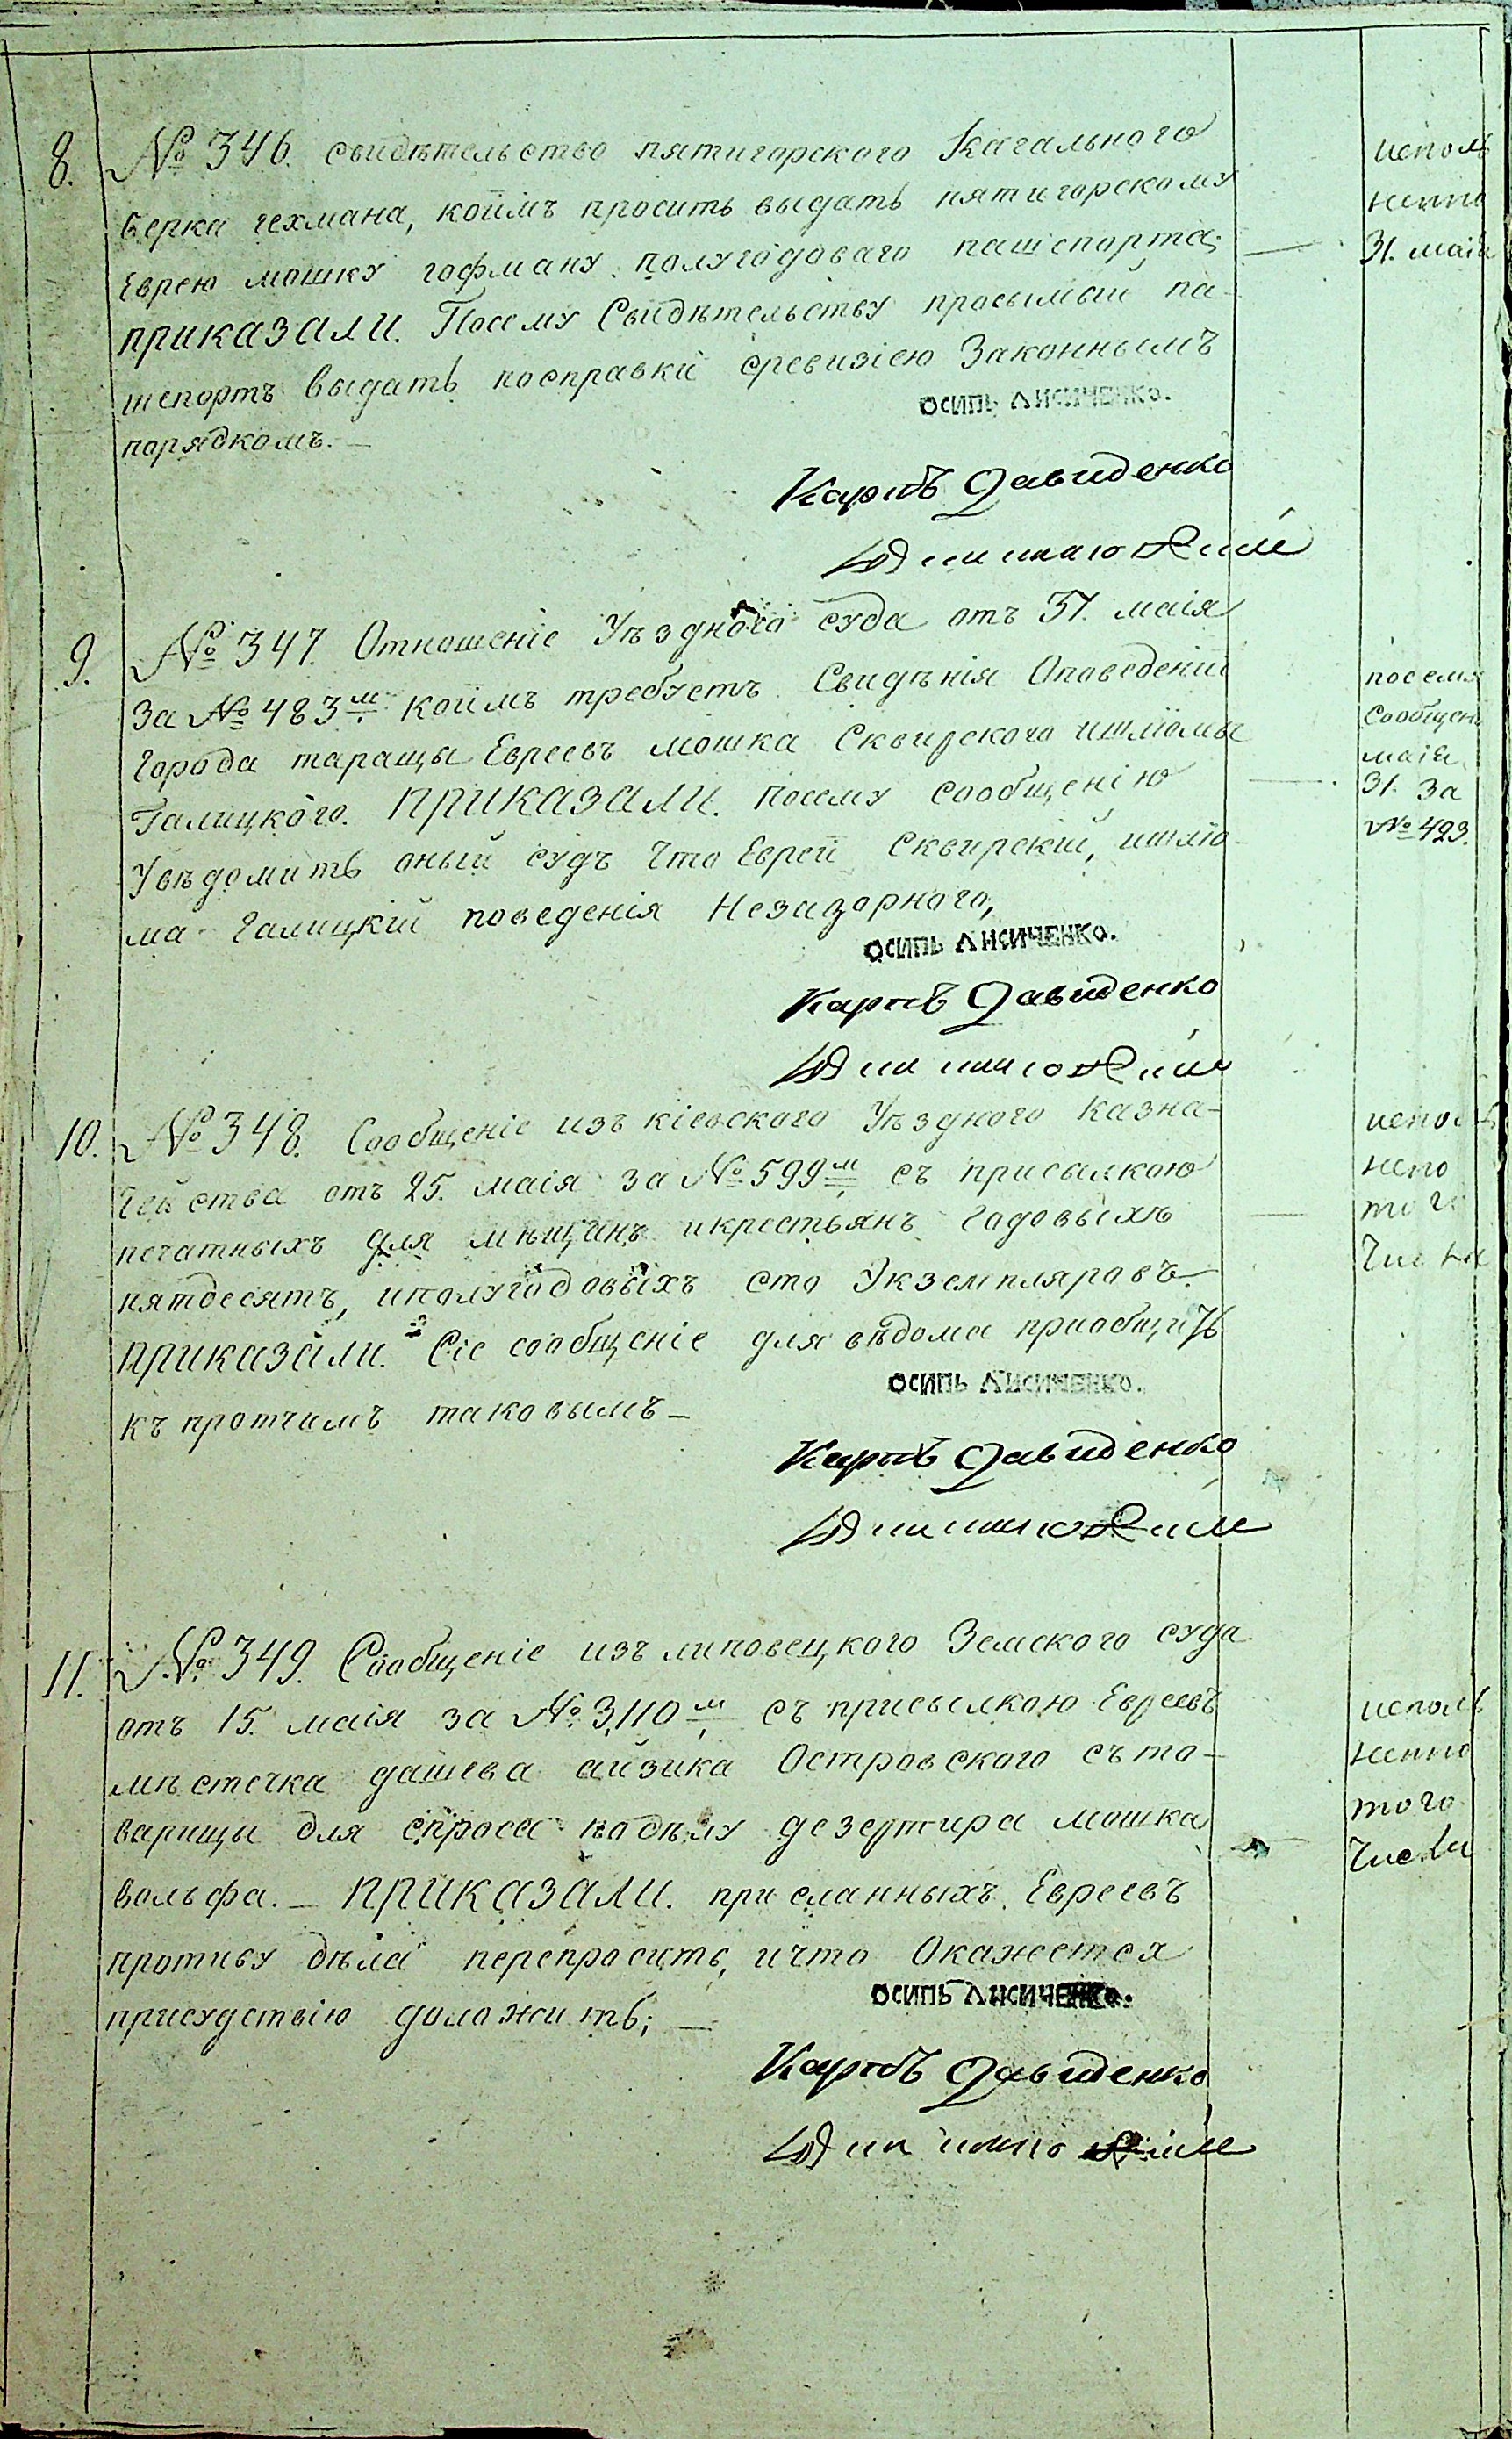 8. № 346. свидѣтельство пятигорского Кагального
берка гехмана, коимъ просить выдать пятигорскому
Еврею мошку гофману полугодоваго пашепорта,
приказали. Посему Свидѣтельству просымый па-
шепортъ выдать посправки сревизіею Законнымъ
порядкомъ. —
исполь
ненно
31. маія
осипъ лисиченко.
Карпъ Давиденко
9. № 347. Отношеніе Уѣздного суда отъ 31. маія
за № 483м коимъ требуетъ Свидѣнія Оповеденіи
Города таращы Евреевъ мошка Сквирского ишлиомы
Галицкого. приказали. посему сообщенію
Увѣдомить оный судъ Что Еврей Сквирскій, ишлио-
ма Галицкій поведенія Незазорного,
посему
Сообщено
маія
31. За
№ 423.
осипъ лисиченко.
Карпъ Давиденко
10. № 348. Сообщеніе изъ кіевского Уѣздного Казна-
чейства отъ 25. маія за № 599м съ присылкою
печатныхъ для мѣщанъ икрестьянъ Годовыхъ
пятдесятъ, иполугодовыхъ сто Экземпляровъ.
приказали. Сіе сообщеніе для вѣдома приобщить
къ протчимъ таковымъ —
исполь
нено
того
Числа
осипъ лисиченко.
Карпъ Давиденко
11. № 349. Сообщеніе изъ липовецкого Земского суда
отъ 15. маія за № 3,110м съ присылкою Евреевъ
мѣстечка дашева айзика Островского съ то-
варищы для спроса подѣлу дезертира мошка
вольфа. — приказали. присланныхъ Евреевъ
противу дѣла перепросить, ичто Окажется
присудствію доложить; —
исполь
ненно
того
Числа
осипъ лисиченко.
Карпъ Давиденко